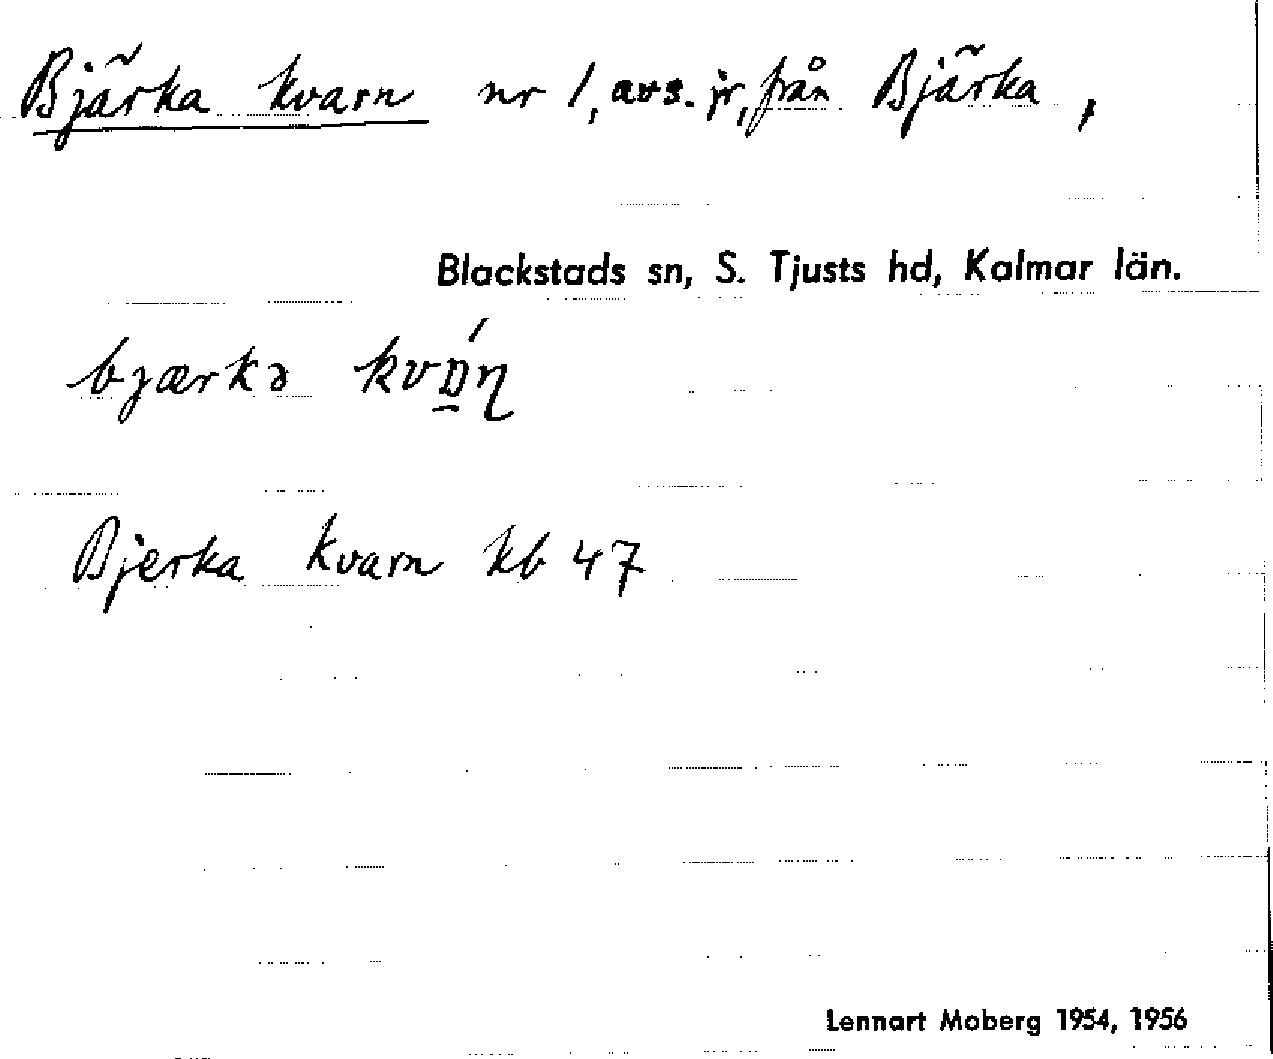 Bjärka kvarn nr 1, avs. jr, från Bjärka,
Blackstads sn, S. Tjusts hd, Kalmar län.
bjærkə
Bjerka kvarn kb 47
Lennart Moberg 1954, 1956